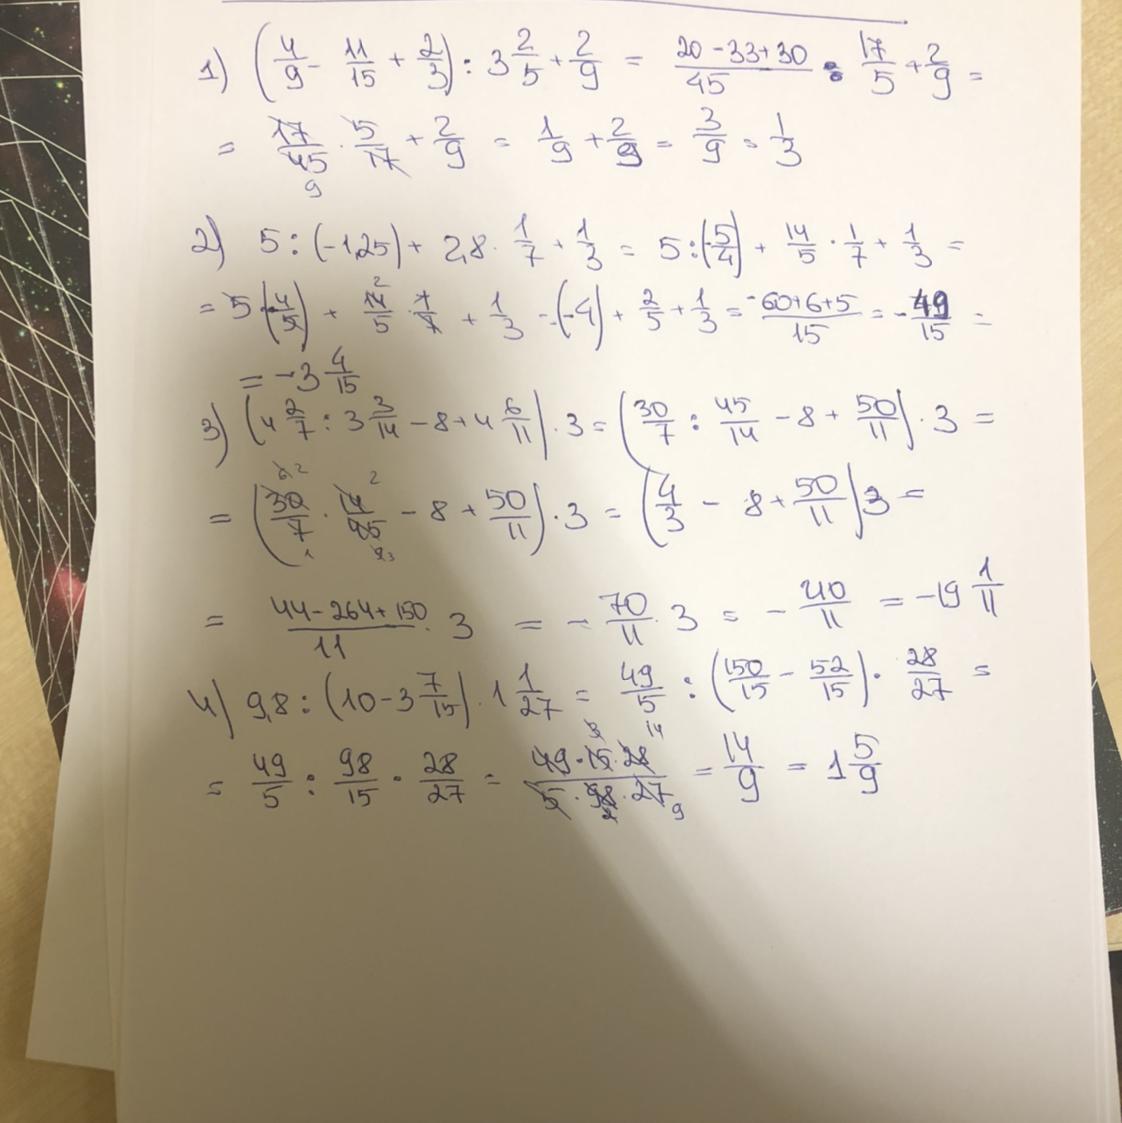 1) (4/9 - 11/15 + 2/3) : 3 2/5 + 2/9 = (20 - 33 + 30)/45 : 17/5 + 2/9 =
= 17/45 · 5/17 + 2/9 = 1/9 + 2/9 = 3/9 = 1/3
9
2) 5 : (-1,25) + 2,8 · 1/7 + 1/3 = 5 : (-5/4) + 14/5 · 1/7 + 1/3 =
2
= 5 (-4/5) + 14/5 · 1/7 + 1/3 - (-4) + 2/5 + 1/3 = (-60+6+5)/15 = - 49/15 =
= -3 4/15
3) (4 2/7 : 3 3/14 - 8 + 4 6/11) · 3 = (30/7 : 45/14 - 8 + 50/11) · 3 =
6 2 2
= (30/7 · 14/45 - 8 + 50/11) · 3 = (4/3 - 8 + 50/11) 3 =
1 9 3
= (44 - 264 + 150)/11 · 3 = - 70/11 · 3 = - 210/11 = -19 1/11
4) 9,8 : (10 - 3 7/15) · 1 1/27 = 49/5 : (150/15 - 52/15) · 28/27 =
3 14
= 49/5 : 98/15 · 28/27 = (49 · 15 · 28)/(5 · 98 · 27) = 14/9 = 1 5/9
2 9